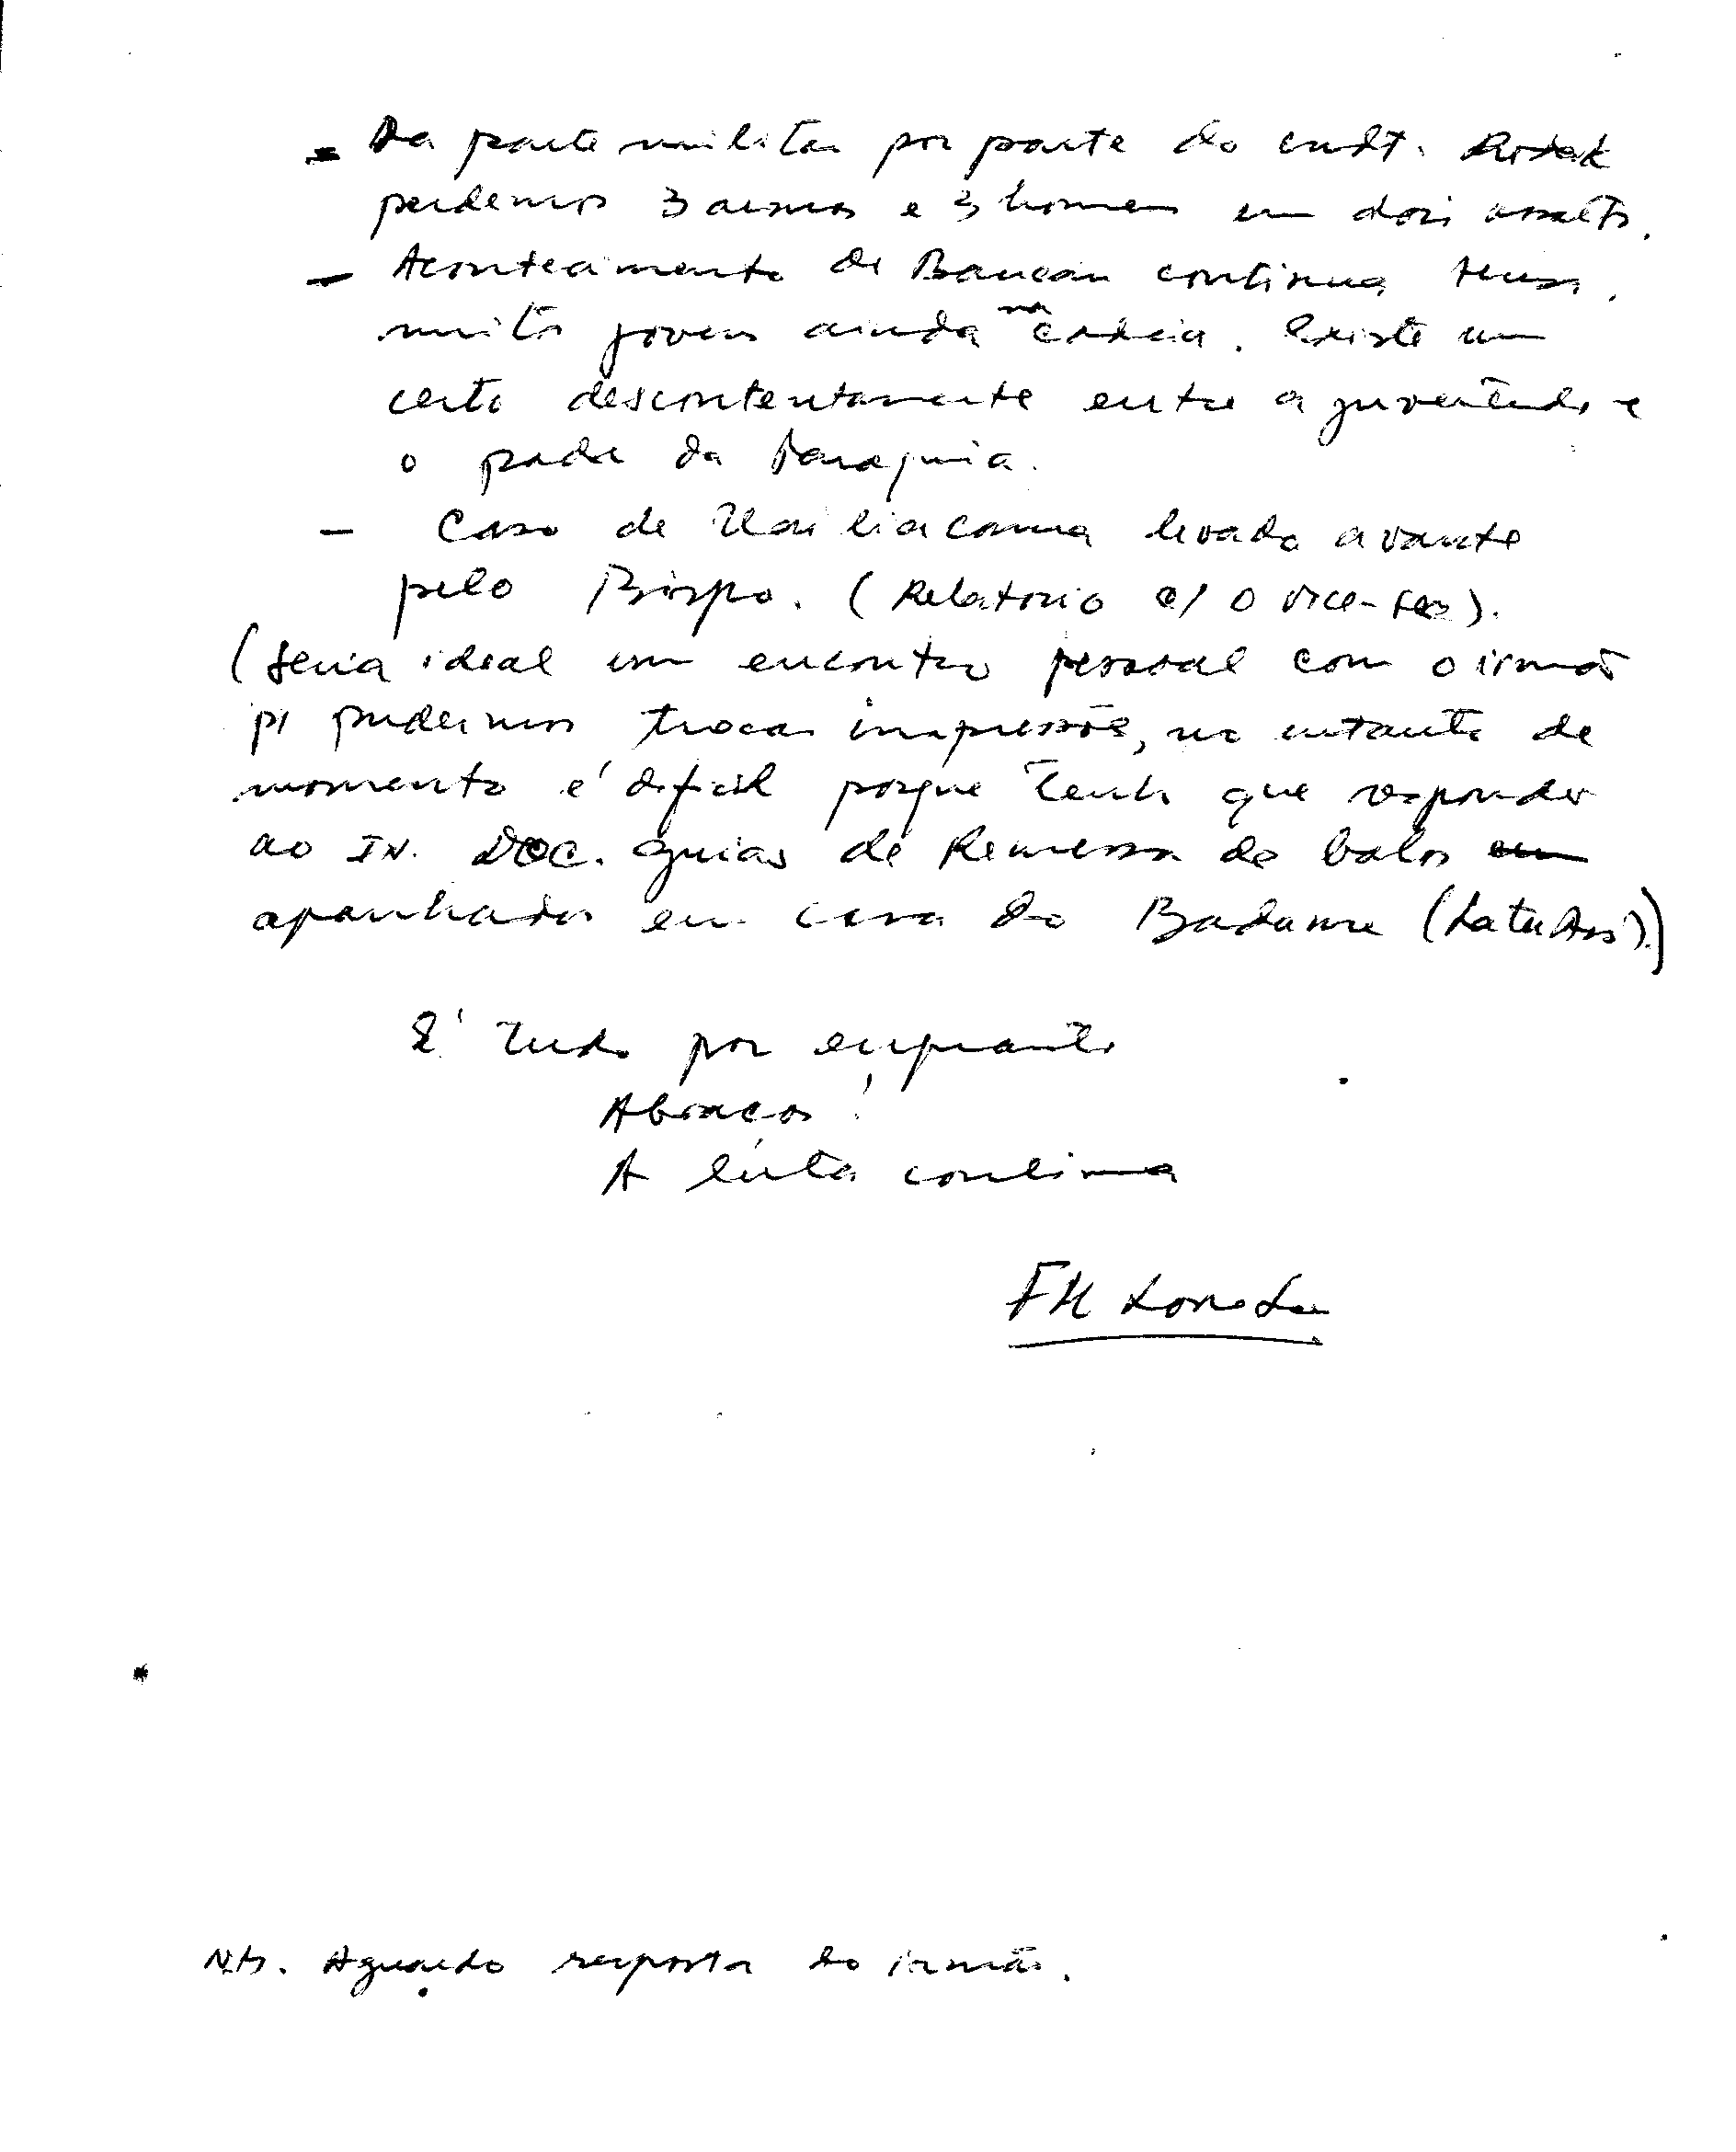 - Da parte militar por parte do cmdt.
perdemos 3 armas e 3 homens em dois assaltos.
- Acontecimento de Baucau continua tenso,
muito jovem ainda na cadeia. Existe um
certo descontentamente entre a juventude e
o padre da Paroquia.
- Caso de levado avante
pelo Bispo. (Relatorio c/ o vice-sec).
(Seria ideal um encontro pessoal com o irmão
p/ pudermos trocar impressões, no entanto de
momento é dificil porque tenho que responder
ao IN. DOC. guias de Remessa de
apanhados em casa do Badame
É tudo por enquanto
Abraços!
A luta continua
FH
N.B. Aguardo resposta do irmão.